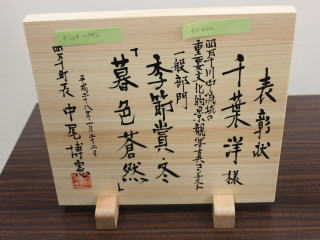 表彰状
千葉洋様
四万十川中流域の
重要文化的景観写真コンテスト
一般部門
季節賞・冬
「暮色蒼然」
平成二十八年一月二十二日
四万十町長 中尾博憲